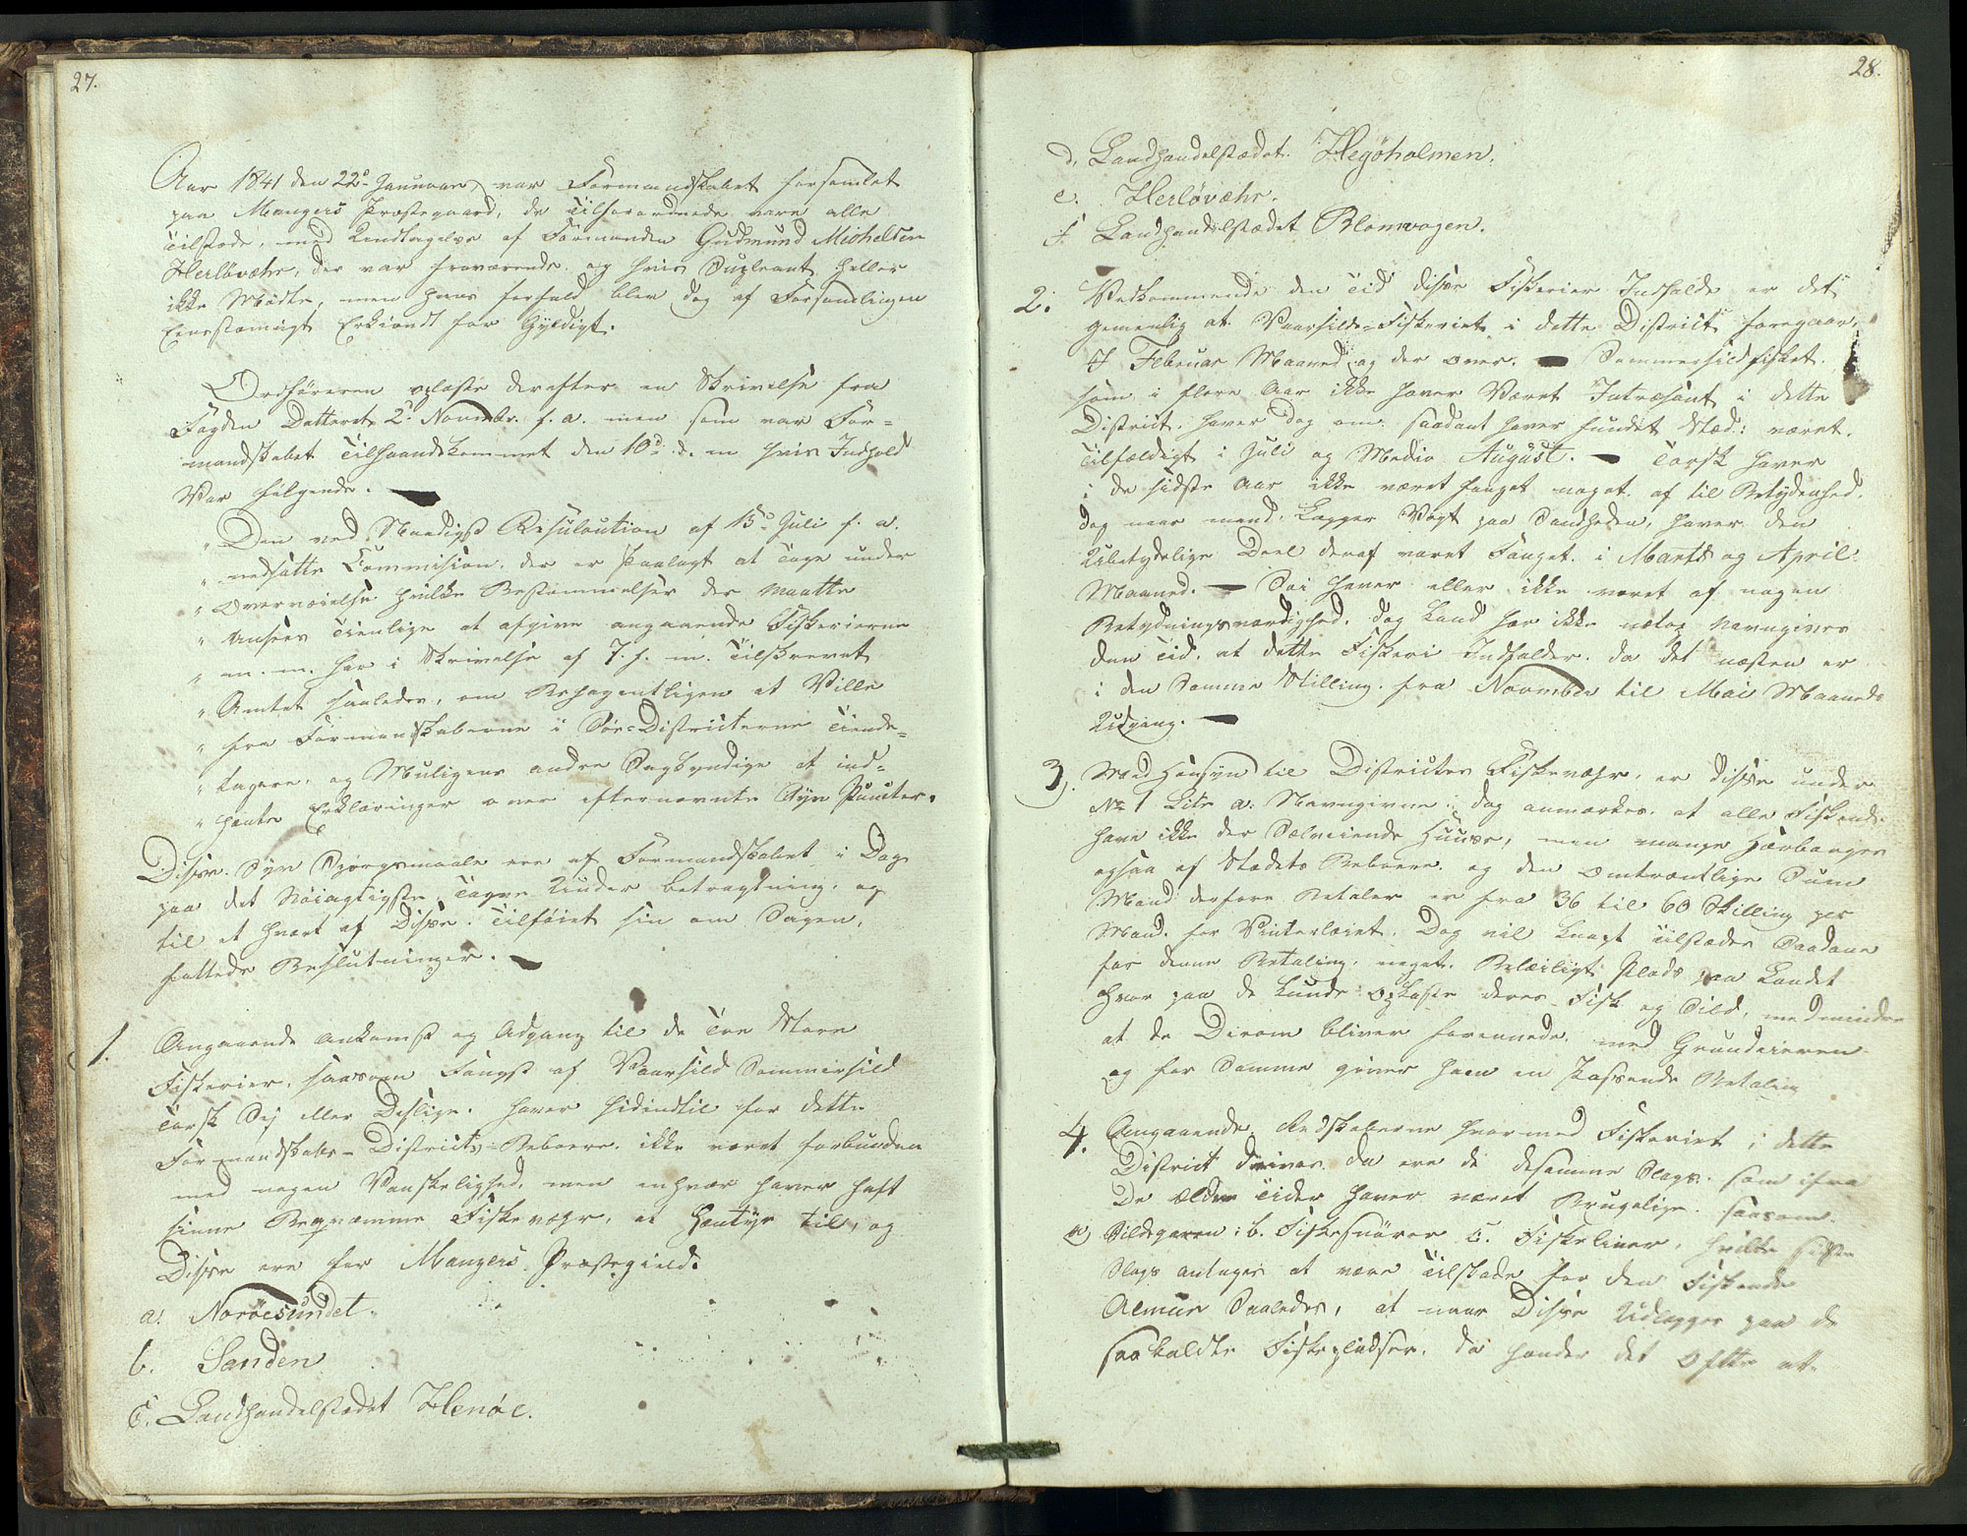 27.
Aar 1841 den 22de Januari var Formandskabet forsamlet
paa Mangers Præstegaard, de Tilforordnede vare alle
Tilstede, med Undtagelse af Formanden Gudmund Michelsen
Herløvæhr, der var fraværende og hvis Supleant heller
ikke Mødte, men hans forfald blev dog af Forsamlingen
Eenstemigt Erkiendt for Gyldigt.
Ordføreren oplæste derefter en Skrivelse fra
Fogden Datteret 2. Novembr. f. a. men som var For-
mandskabet Tilhaandekommet den 10de d. m hvis Indhold
Var følgende.
" Den ved Naadigst Resulution af 13de Juli f. a.
" nedsatte Commision, der er Paalagt at Tage under
" Overveielse hvilke Bestemmelser der maatte
" Ansees Tienlige at afgive angaaende Fiskerierne
" m. m. har i Skrivelse af 7. f. m. Tilskrevet
" Amtet saaledes, om Behagentligen at Ville
" fra Formandskaberne i Sør-Districterne Tiende-
" tagere, og Muligens andre Sagkyndige at ind-
" hente Erklæringer over efternævnte Syv Puncter.
Disse Syv Spørgsmaale ere af Formandskabet i Dag
paa det Nøiagtigste Tagne Under betragtning, og
til et hvert af Disse Tilføiet sin om Sagen,
fattede Beslutninger.
1. Angaaende ankomst og Adgang til de Tre Store
Fiskerier, saasom Fangst af Vaarsild Sommersild
Torsk Sej eller Deslige, haver hidindtil for dette
Formandskabs-Districts-Beboere, ikke været forbunden
med nogen Vanskelighed, men enhver haver haft
sinne Beqvæmme Fiskevæhr, at Hentye til, og
Disse ere for Mangers Præstegield.
a. Norøesundet.
b. Sanden
c. Landhandelstedet Henøe.
28.
d, Landhandelstædet Hegøholmen.
e. Herløvæhr.
f. Landhandelstædet Blomvogen.
2. Vedkommende den Tid disse Fiskerier Indfalde er det
gemenlig at Vaarsilde-Fiskeriet i dette District foregaar,
I Februar Maaned og der over. Sommersildfisket.
som i flere Aar ikke haver Været Intræsant i dette
District, haver dog om saadant haver fundet Stæd: været.
Tilfældigt i Juli og Medio August. Torsk haver
i de sidste Aar ikke været fanget noget af til Betydenhed.
dog naar mand Lægger Vægt paa Sandheden, haver den
Ubetydelige Deel deraf været Fanget i Marts og April
Maaned. Sei haver eller ikke været af nogen
Betydningsværdighed, dog kand her ikke netop navngives
den Tid, at dette Fiskeri Indfalder, da det næsten er
i den Samme Stilling fra November til Mai Maaneds
Udgang.
3. Med Hensyn til Districtes Fiskevæhr, er disse under
No 1 Litr a: Navngivne: dog anmærkes, at alle Fiskende
have ikke der Selveiende Huuse, men mange Herberger
ogsaa af Stædets Beboere, og den Omtrentlige Sum
Mand derfore Betaler er fra 36 til 60 Skilling per
Mand for Vinterleiet. Dog vil knapt Tilstædes Saadane
for denne Betaling, noget Beleiligt Plads paa Landet
hvor paa de kunde Oplaste deres Fisk og Sild, medmindre
at de Derom bliver forennede med Grundeieren
og for Samme giver ham en Passende Betaling
4. Angaaende Redskaberne hvormed Fiskeriet i dette
District Drives, da ere de desamme Slags, som ifra
De Ældre Tider haver været Brugelige, saasom.
a) Sildegaren: b. Fiskesnører c. Fiskeliner, hvilke sidste
Slags antages at være Tilskade for den Fiskende
Almue Saaledes, at naar Disse Udlægges paa de
saakaldte Fiskepladser, da hænder det Ofte at